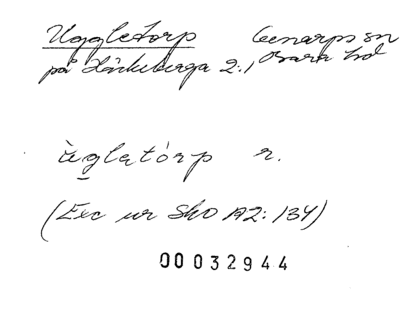 Uggletorp Genarps sn
på Häckeberga 2:1 Bara hd
ùglatórp r.
(Exc ur SkO A2:134)
00032944